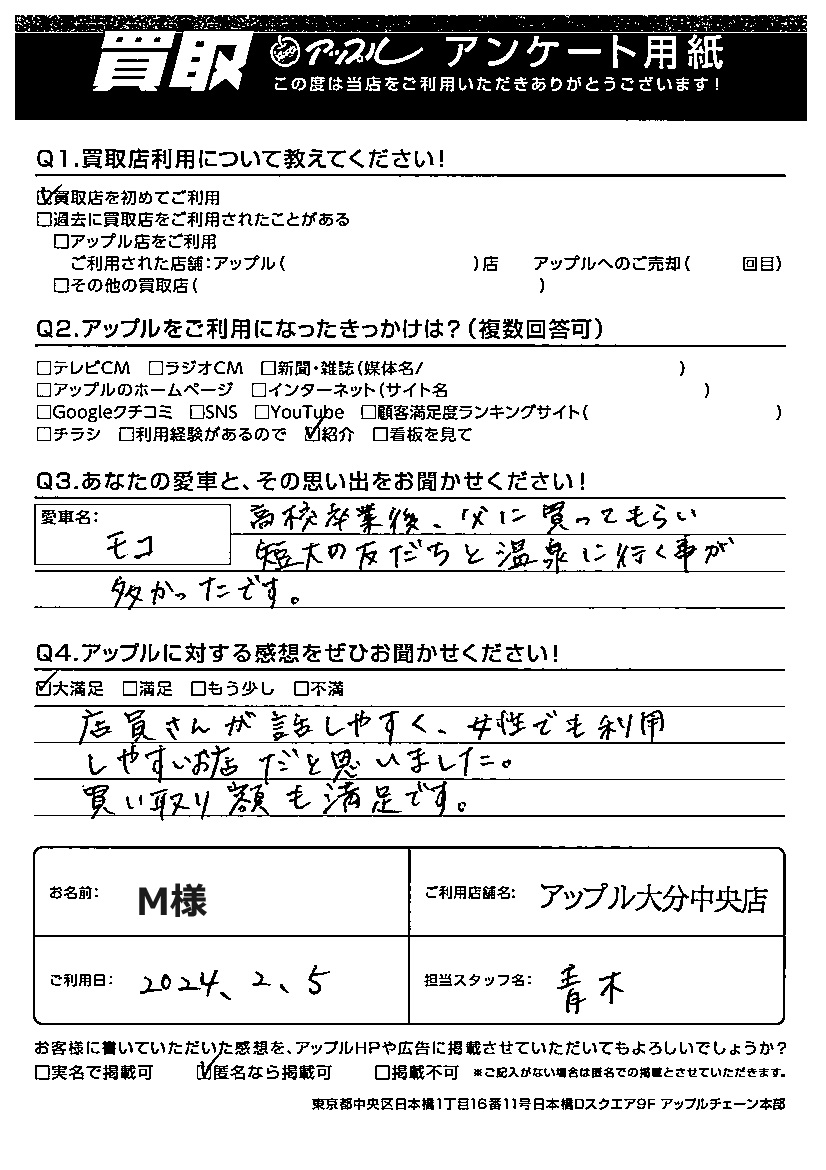 買取 アップル アンケート用紙
この度は当店をご利用いただきありがとうございます!
Q1.買取店利用について教えてください!
☑買取店を初めてご利用
□過去に買取店をご利用されたことがある
□アップル店をご利用
ご利用された店舗:アップル( )店 アップルへのご売却( 回目)
□その他の買取店( )
Q2.アップルをご利用になったきっかけは?(複数回答可)
□テレビCM □ラジオCM □新聞・雑誌(媒体名/ )
□アップルのホームページ □インターネット(サイト名 )
□Googleクチコミ □SNS □YouTube □顧客満足度ランキングサイト( )
□チラシ □利用経験があるので ☑紹介 □看板を見て
Q3.あなたの愛車と、その思い出をお聞かせください!
愛車名: モコ
高校卒業後、父に買ってもらい
短大の友だちと温泉に行く事が
多かったです。
Q4.アップルに対する感想をぜひお聞かせください!
☑大満足 □満足 □もう少し □不満
店員さんが話しやすく、女性でも利用
しやすいお店だと思いました。
買い取り額も満足です。
お名前: M様 ご利用店舗名: アップル大分中央店
ご利用日: 2024、2、5 担当スタッフ名: 青木
お客様に書いていただいた感想を、アップルHPや広告に掲載させていただいてもよろしいでしょうか?
□実名で掲載可 ☑匿名なら掲載可 □掲載不可 ※ご記入がない場合は匿名での掲載とさせていただきます。
東京都中央区日本橋1丁目16番11号日本橋Dスクエア9F アップルチェーン本部